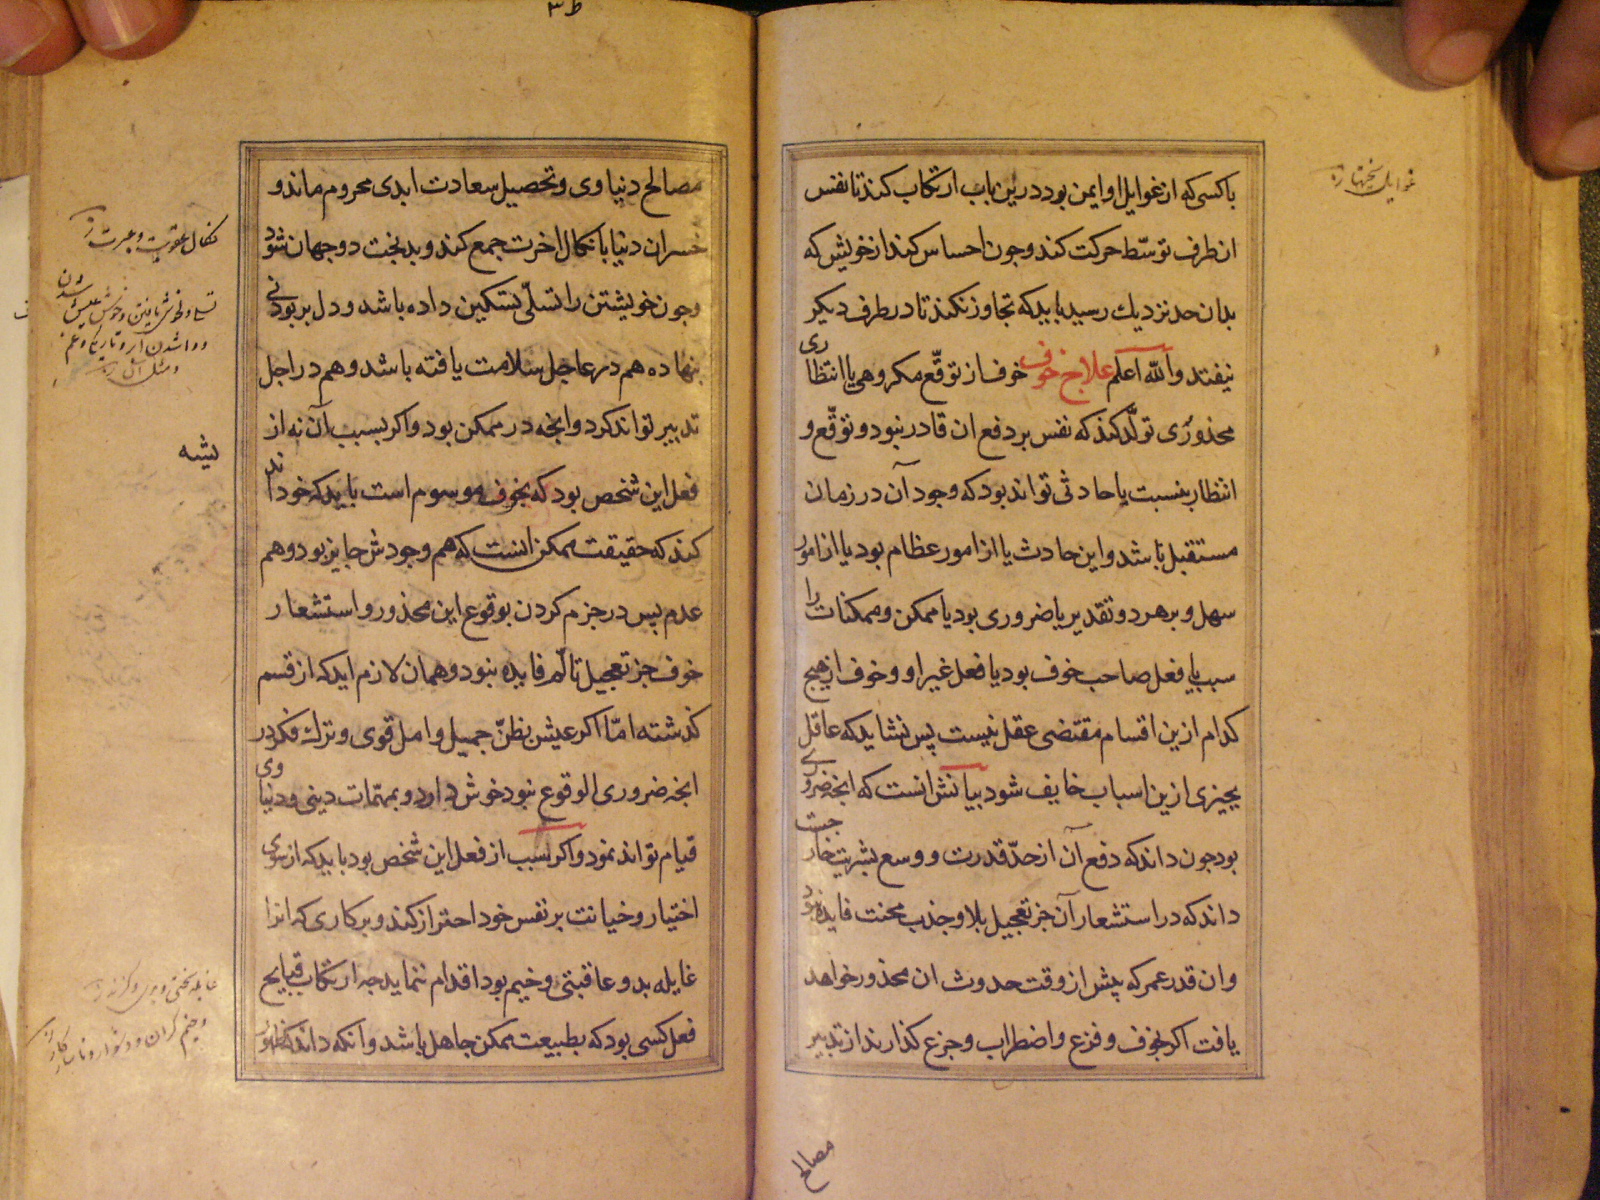 باکسی که از غوایل او ایمن بود درین باب ارتکاب کند تا نفس
ان طرف توسّط حرکت کند و جون احساس کند از خویش که
بدان حد نزدیک رسید باید که تجاوز نکند تا در طرف دیکر
نیفتد والله اعلم علاج خوف خوف از توقّع مکروهی یا انتظاری
محذوری تولّد کند که نفس بر دفع ان قادر نبود و توقّع و
انتظار بنسبت با حادثی تواند بود که وجود آن در زمان
مستقبل باشد و این حادث یا از امور عظام بود یا از امور
سهل و بر هر دو تقدیر یا ضروری بود یا ممکن و ممکنات را
سبب یا فعل صاحب خوف بود یا فعل غیر او و خوف از هیج
کدام ازین اقسام مقتضی عقل نیست پس نشاید که عاقل
بجیزی ازین اسباب خایف شود بیانش انست که انجه ضروری
بود جون داند که دفع آن از حدّ قدرت و وسع بشریت خارجست
داند که در استشعار آن جز تعجیل بلا و جذب محنت فایده نبود
و ان قدر عمر که پیش از وقت حدوث ان محذور خواهد
یافت اکر بخوف و فزع و اضطراب و جزع کذارند از تدبیر
مصالح
غوایل
ط ٣
مصالح دنیاوی و تحصیل سعادت ابدی محروم ماند و
خسران دنیا با نکال اخرت جمع کند و بدبخت دو جهان شود
وجون خویشتن را تسلّی تسکین داده باشد و دل بر بودنی
بنهاده هم در عاجل سلامت یافته باشد و هم در اجل
تدبیر تواند کرد و انجه در ممکن بود و اکر بسبب آن نه از
فعل این شخص بود که بخوف موسوم است باید که خود اندیشه
کند که حقیقت ممکن انست که هم وجودش جایز بود و هم
عدم پس در جزم کردن بوقوع این محذور و استشعار
خوف جز تعجیل تالّم فایده نبود و همان لازم اید که از قسم
کذشته امّا اکر عیش بظنّ جمیل و امل قوی و ترک فکر در
انجه ضروری الوقوع نبود خوش دارد و بمهمّات دینی و دنیاوی
قیام تواند نمود و اکر سبب از فعل این شخص بود باید که از سوی
اختیار و خیانت بر نفس خود احتراز کند و بر کاری که انرا
غایله بد و عاقبتی وخیم بود اقدام ننماید جه ارتکاب قبایح
فعل کسی بود که بطبیعت ممکن جاهل باشد و انکه داند که ظهور
نکال عقوبت و عبرت